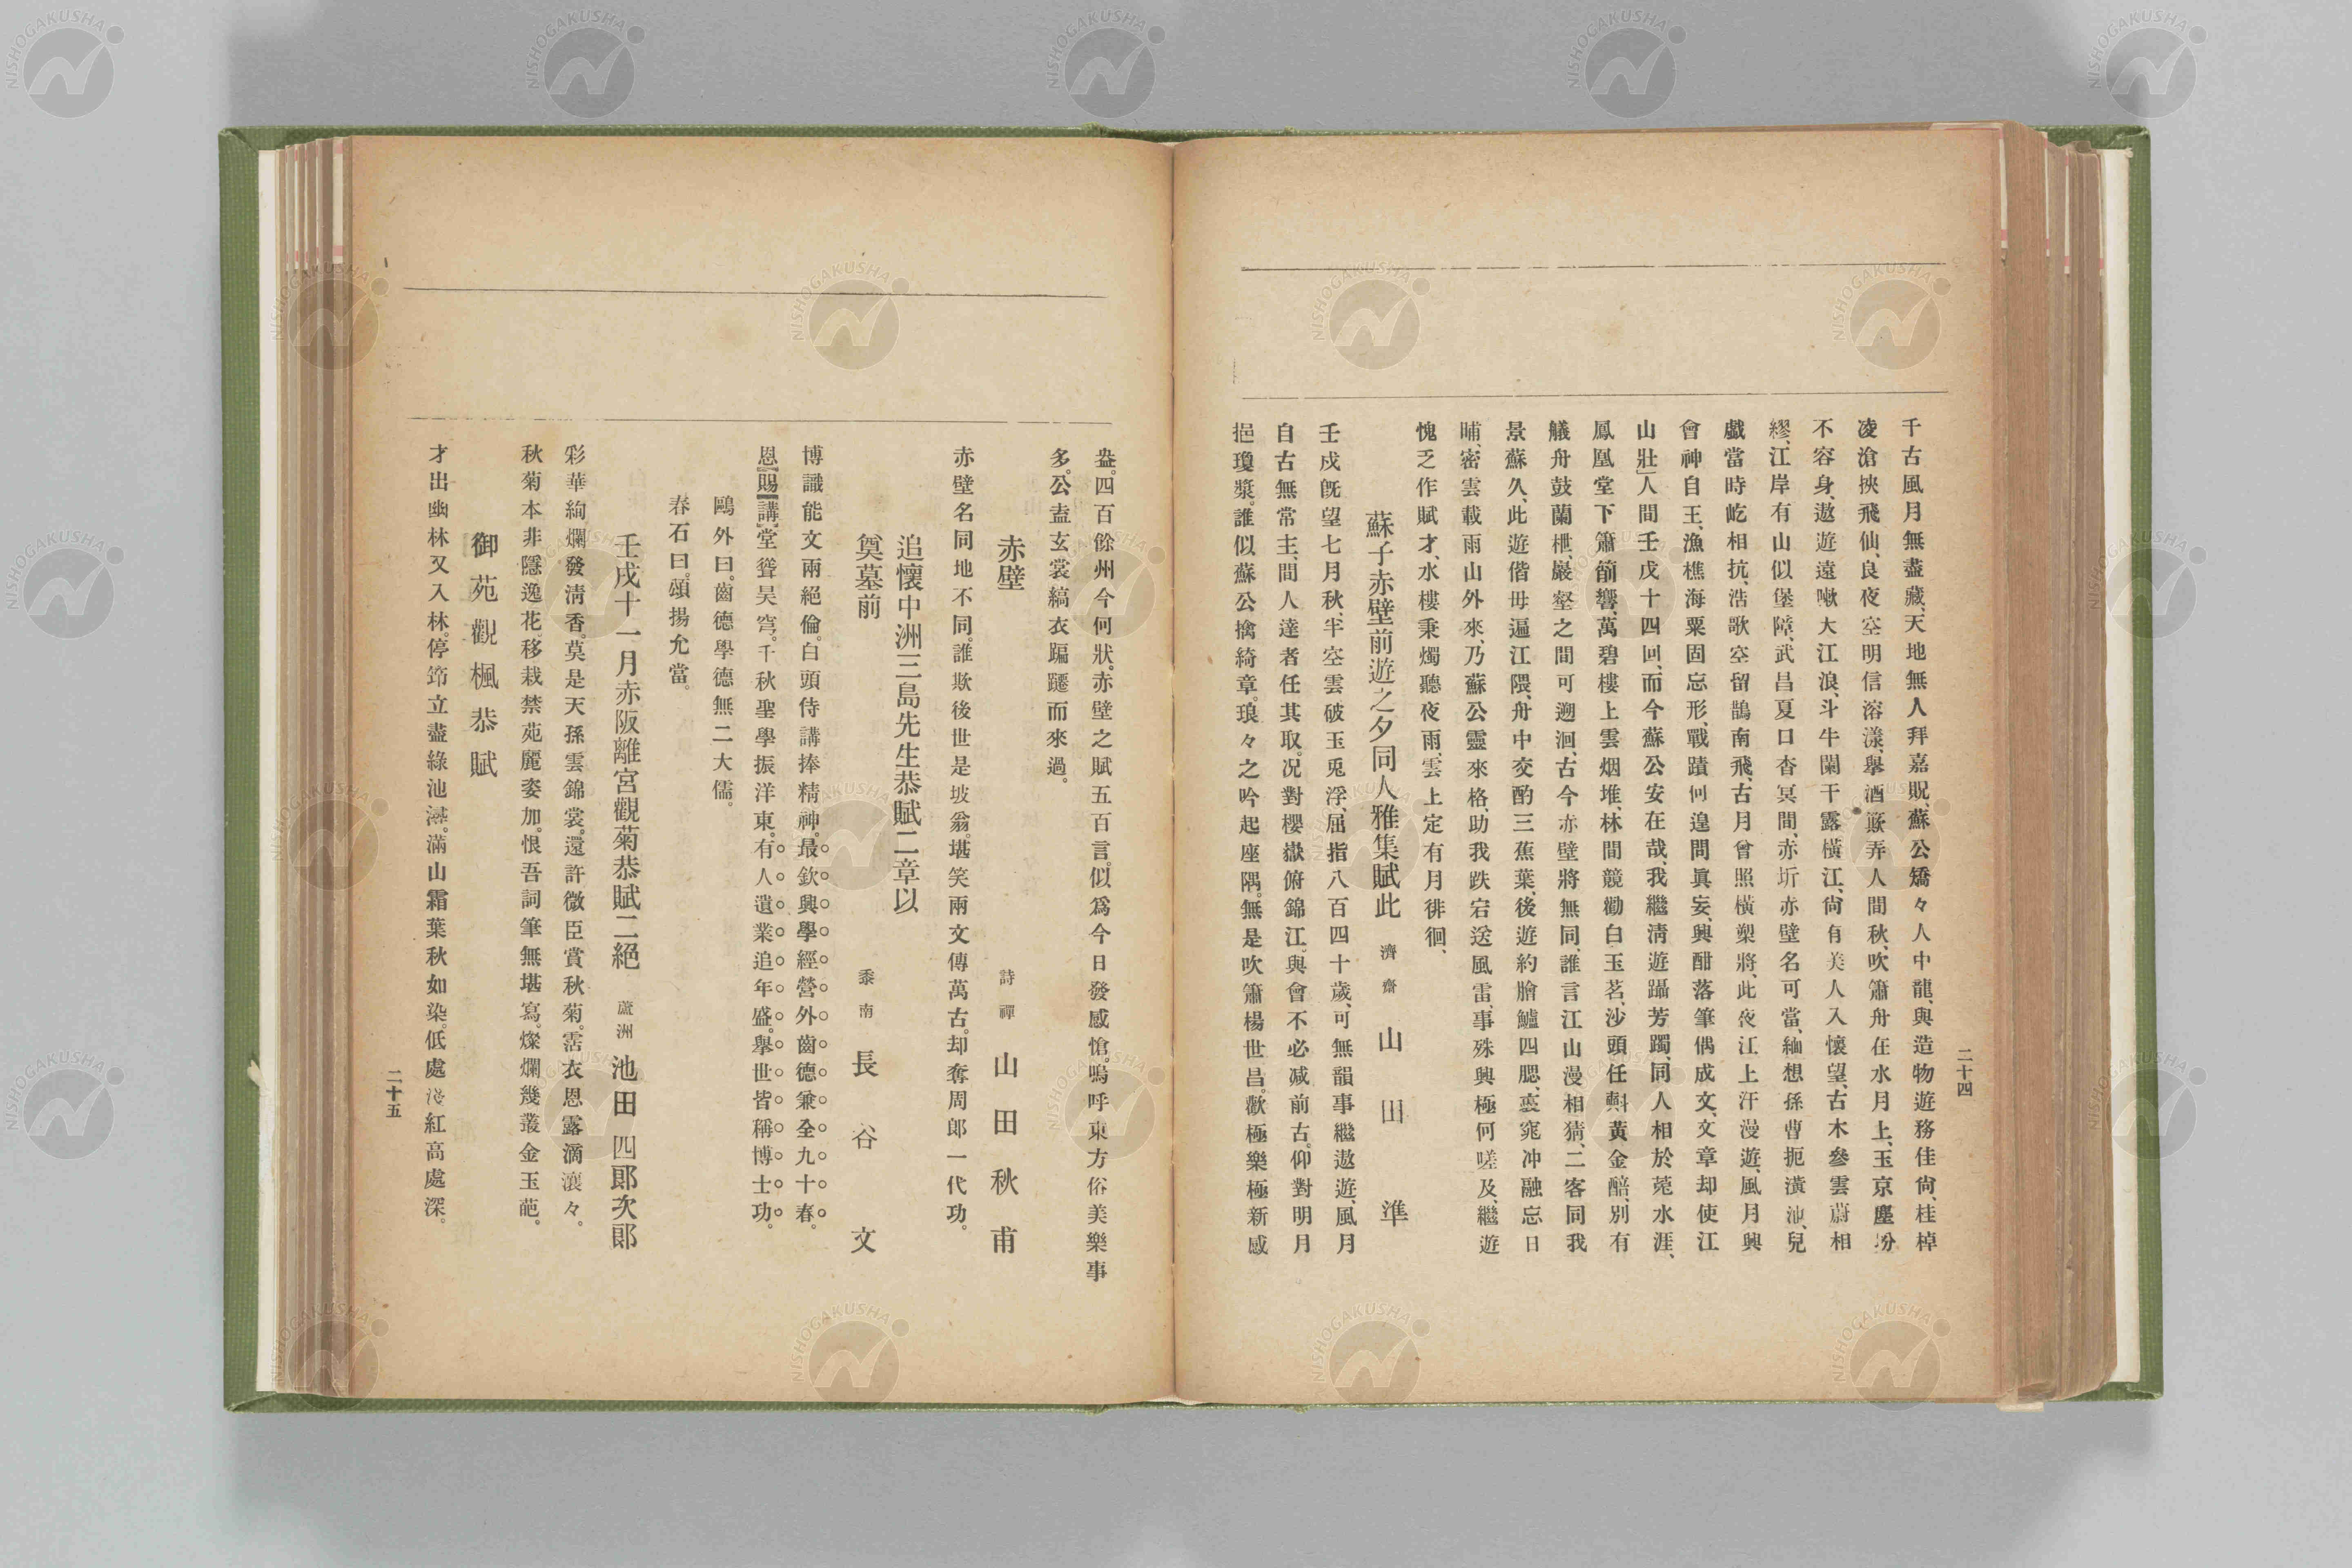 二十四
千古風月無盡藏、天地無人拜嘉貺、蘇公矯々人中龍、與造物遊務佳尙、桂棹
凌滄挾飛仙、良夜空明信溶漾、擧酒 弄人間秋、吹簫舟在水月上、玉京塵坋
不容身、遨遊遠噉大江浪、斗牛闌干露橫江、尙有美人入懷望、古木參雲蔚相
繆、江岸有山似堡障、武昌夏口杳冥間、赤圻赤壁名可當、緬想孫曹扼潢池、兒
戲當時屹相抗、浩歌空留鵲南飛、古月曾照橫槊將、此夜江上汗漫遊、風月興
會神自王、漁樵海粟固忘形、戰蹟何遑問眞妄、興酣落筆偶成文、文章却使江
山壯」人間壬戊十四回、而今蘇公安在哉、我繼淸遊躡芳躅、同人相於菟水涯、
鳳凰堂下簫韻響、萬碧樓上雲烟堆、林間競勸白玉茗、沙頭任斟黃金醅、別有
艤舟鼓蘭枻、巖壑之間可遡洄、古今赤壁將無同、誰言江山漫相猜、二客同我
景蘇久、此遊偕毋逼江隈、舟中交酌三蕉葉、後遊約膾鱸四腮、衷寃冲融忘日
晡、密雲載雨山外來、乃蘇公靈來格、助我跌宕送風雷、事殊興極何嗟及、繼遊
愧乏作賦才、水樓秉燭聽夜雨、雲上定有月徘徊、
蘇子赤壁前遊之夕同人雅集賦此 濟齋 山田 準
壬戍旣望七月秋、半空雲破玉兎浮、屈指八百四十歲、可無韻事繼遨遊、風月
自古無常主、間人達者任其取。况對櫻嶽俯錦江、與會不必減前古。仰對明月
挹瓊漿。誰似蘇公擒綺章。琅々之吟起座隅。無是吹簫楊世昌。歡極樂極新感
盎。四百餘州今何狀。赤壁之賦五百言。似爲今日發感愴。嗚呼東方俗美樂事
多。公盍玄裳縞衣蹁躚而來過。
赤壁 詩禪 山田秋甫
赤壁名同地不同。誰欺後世是坡翁。堪笑兩文傳萬古。却奪周郎一代功。
追懷中洲三島先生恭賦二章以
奠墓前 黍南 長谷 文
博識能文兩絕倫。白頭侍講捧精神。最欽興學經營外。齒德兼全九十春。
恩【賜】【講】堂聳昊穹。千秋聖學振洋東。有人遺業追年盛。擧世皆稱博士功。
鷗外曰。齒德學德無二大儒。
春石曰。頌揚允當。
壬戌十一月赤阪離宮觀菊恭賦二絕 蘆洲 池田四郞次郞
彩華絢爛發淸香。莫是天孫雲錦裳。還許微臣賞秋菊。霑衣恩露滴瀼々。
秋菊本非隱逸花。移栽禁苑麗姿加。恨吾詞筆無堪寫。燦爛幾叢金玉葩。
御苑觀楓恭賦
才出幽林又入林。停筇立盡綠池潯。滿山霜葉秋如染。低處淺紅高處深。
二十五